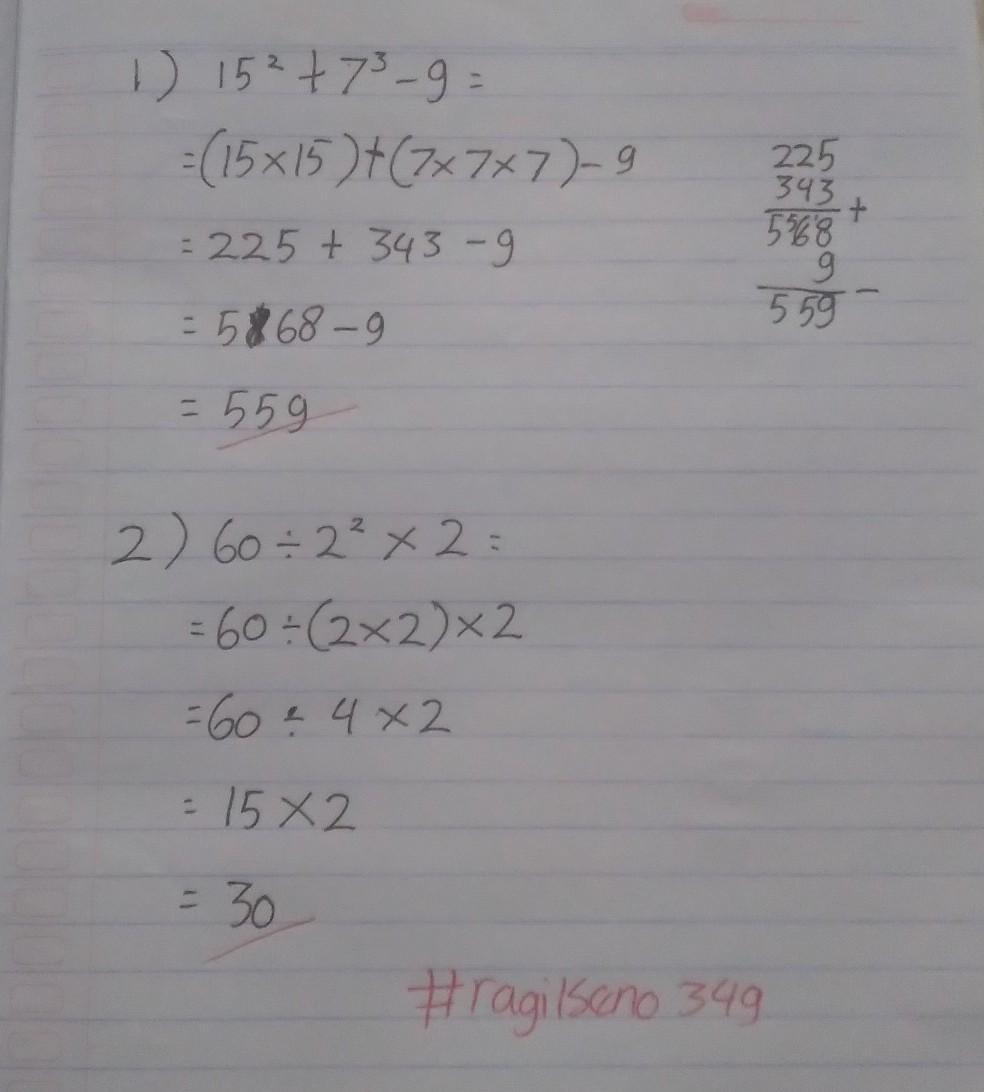 1) 15² + 7³ - 9 =
= (15 × 15) + (7 × 7 × 7) - 9
= 225 + 343 - 9
= 568 - 9
= 559
225
343 +
568
9
559 -
2) 60 ÷ 2² × 2 =
= 60 ÷ (2 × 2) × 2
= 60 ÷ 4 × 2
= 15 × 2
= 30
#ragilseno 349